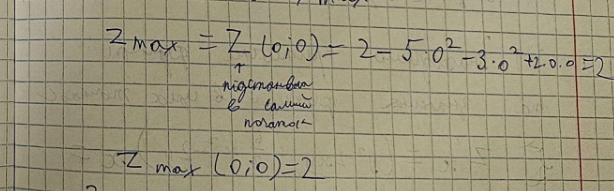 Z max = Z (0;0) = 2 - 5·0² - 3·0² + 2·0·0 = 2
↑
підставила
в самий
початок
Z max (0;0) = 2